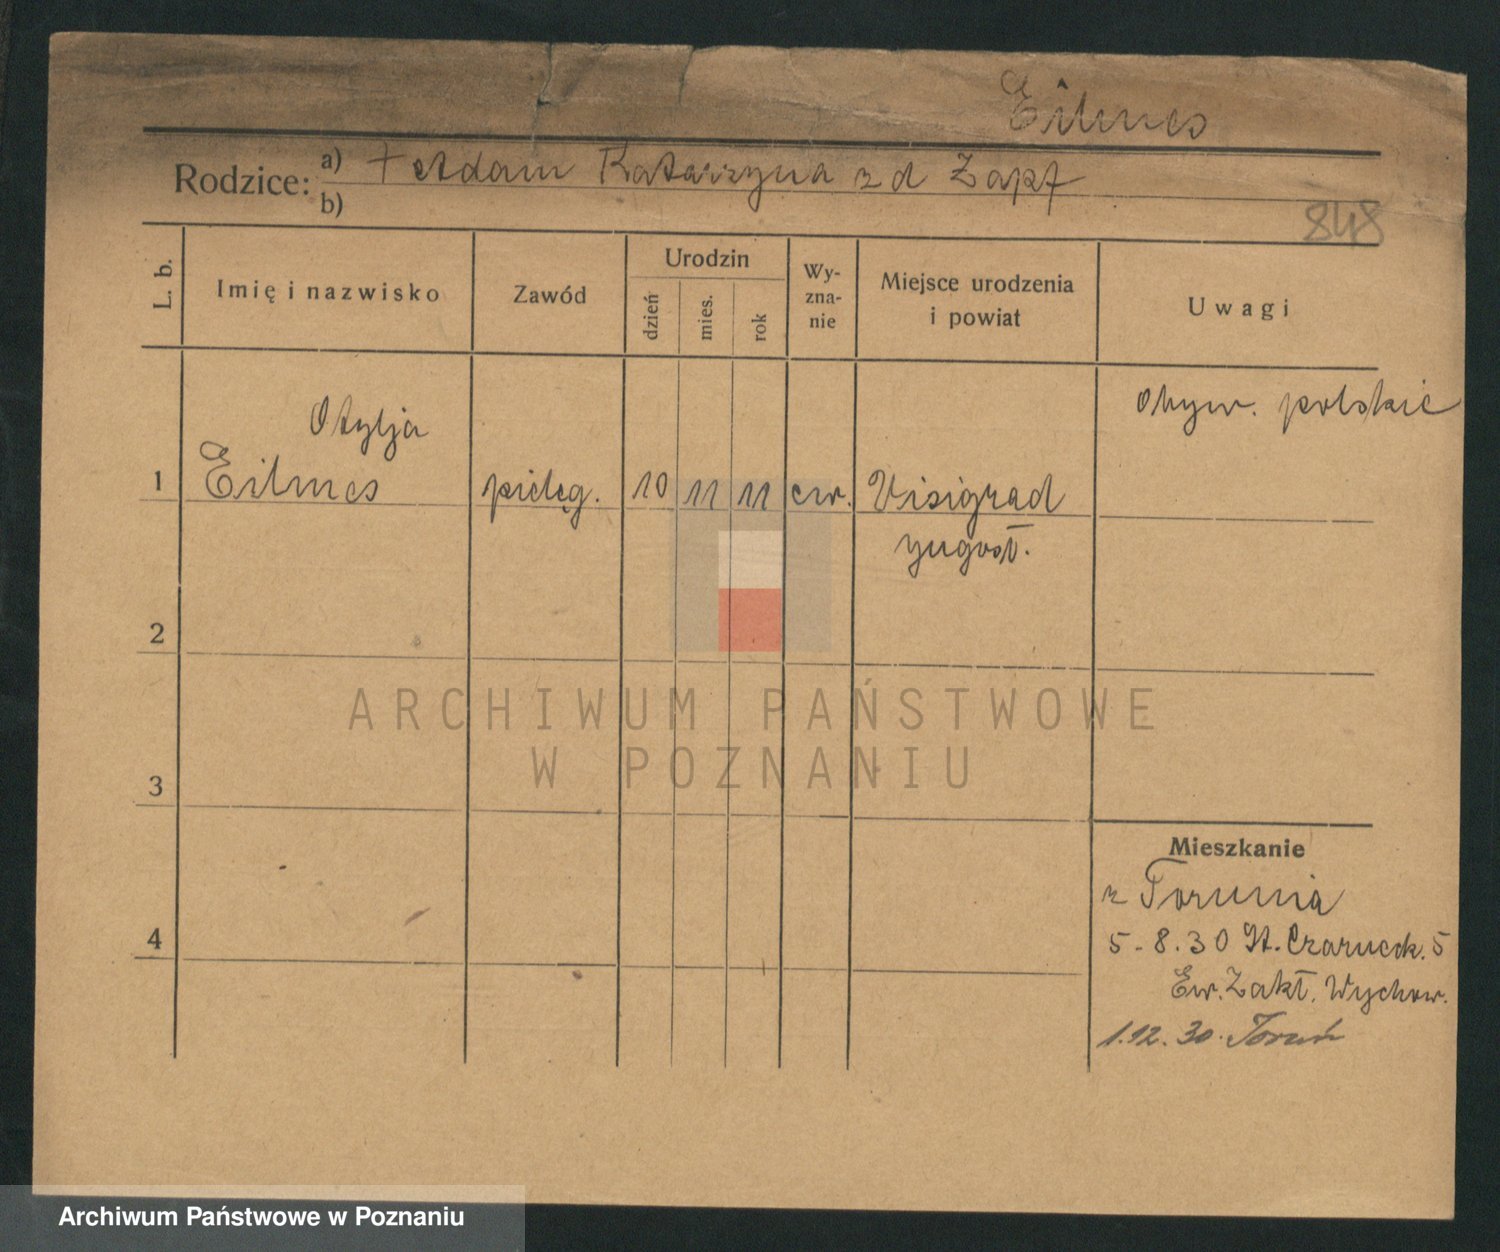 Eilmes
Rodzice: a) † Adam Katarzyna z d Zapf
b)
848
L. b.
Imię i nazwisko
Zawód
Urodzin
dzień
mies.
rok
Wy-
zna-
nie
Miejsce urodzenia
i powiat
Uwagi
Otylja
obyw. polskie
1 Eilmes pielęg. 10 11 11 ew. Visigrad
yugosł.
2
3
4
Mieszkanie
z Torunia
5-8.30 St. Czarneck. 5
Ew. Zakł. Wychow.
1.12.30. Toruń
ARCHIWUM PAŃSTWOWE
W POZNANIU
Archiwum Państwowe w Poznaniu